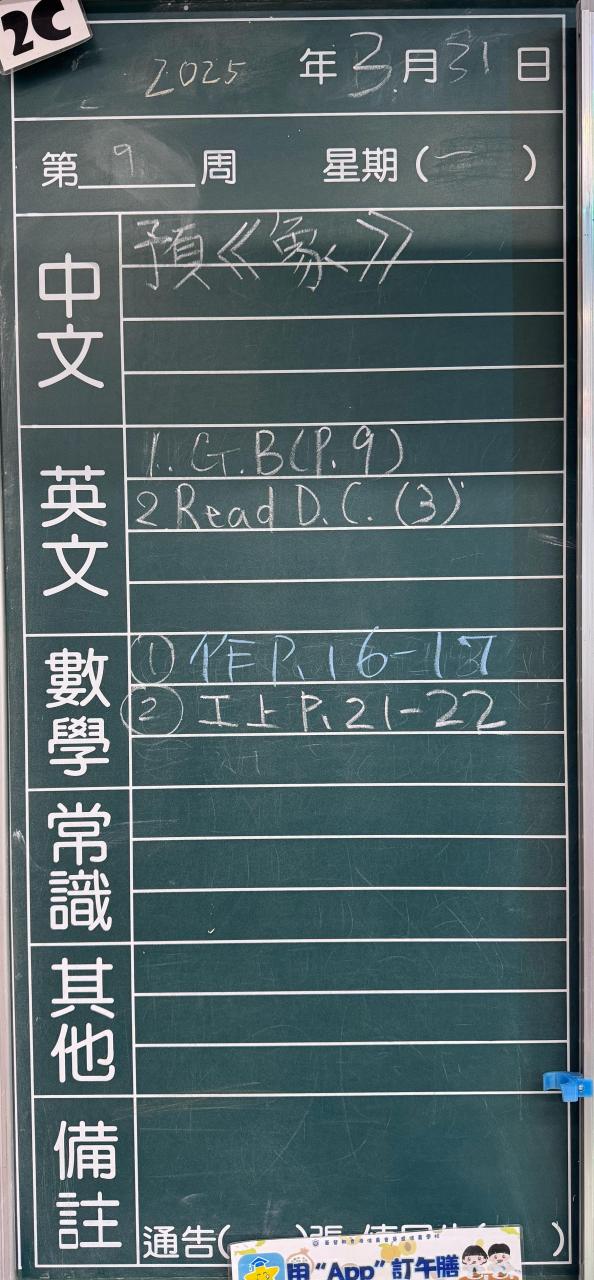 2C
2025 年 3 月 31 日
第 9 周 星期(一)
中文
預《象》
英文
1. G.B(P.9)
2 Read D.C. (3)
數學
① 作 P. 16-17
② 工上 P. 21-22
常識
其他
備註
通告( )張
用“App”訂午膳